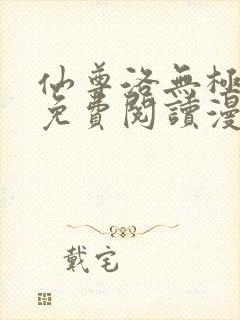 仙尊洛無極
免費閱讀漫
戴宅